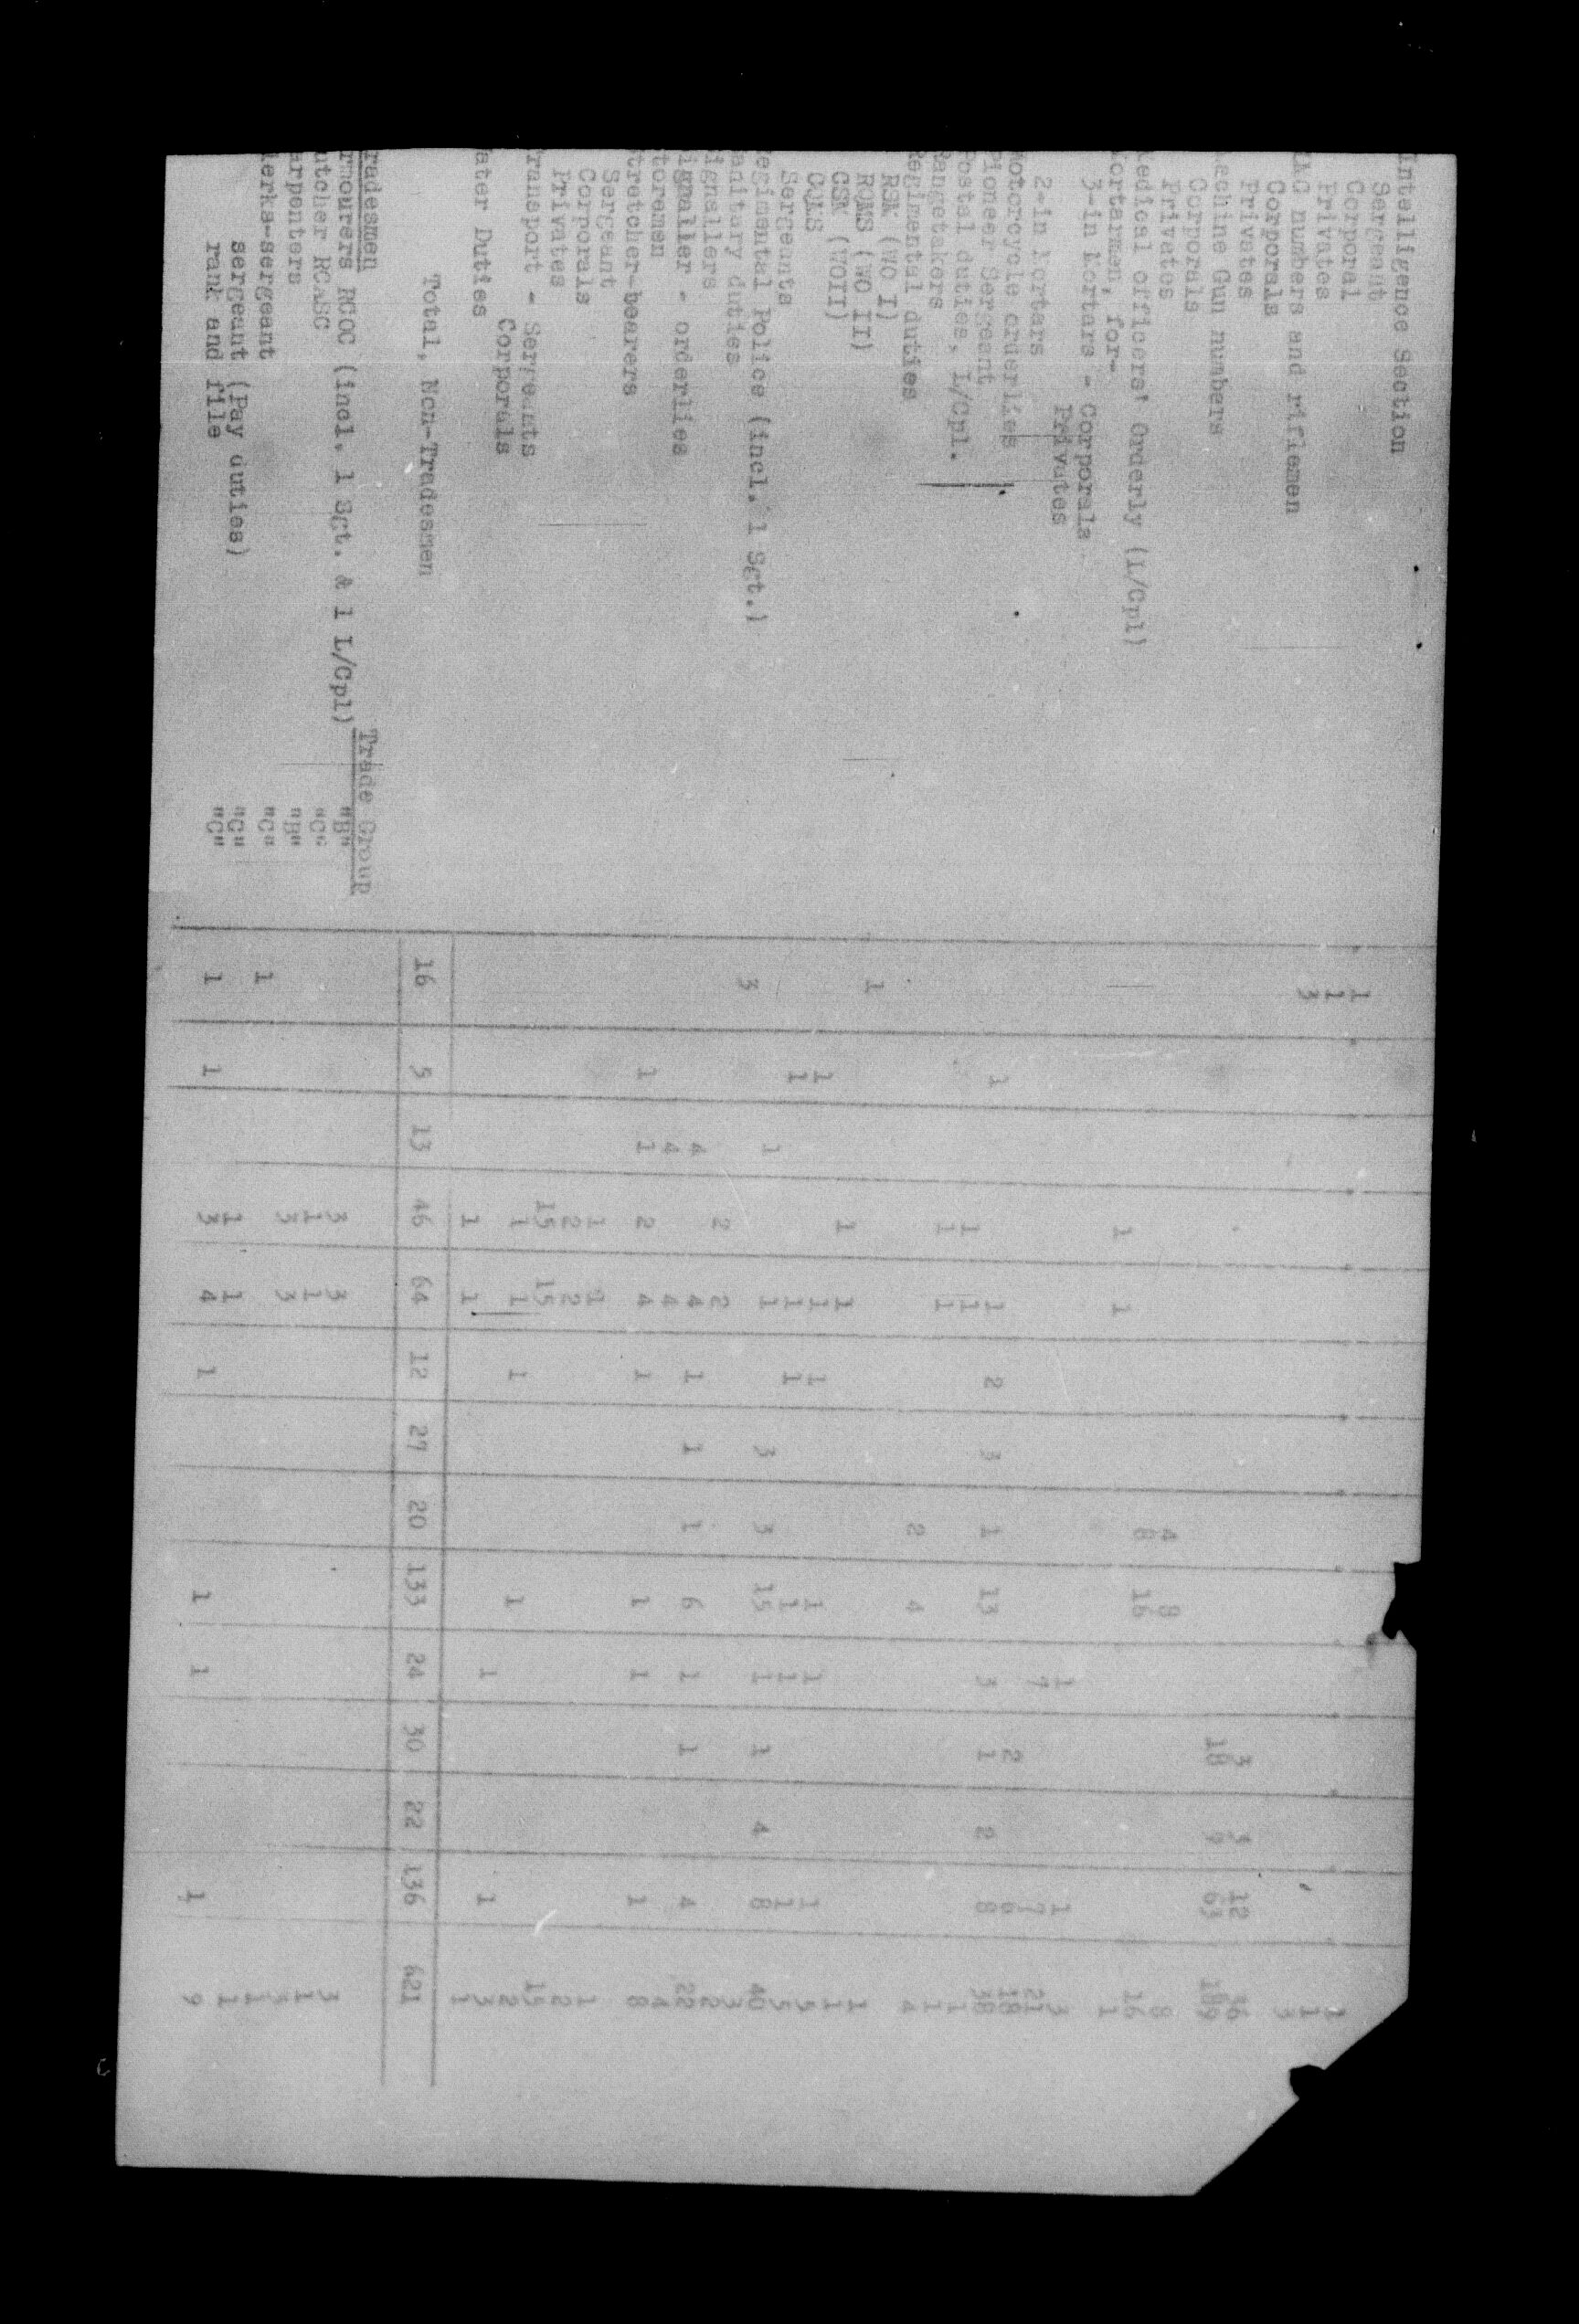 Intelligence Section
Sergeant 1 1
Corporal 1 1
Privates 3 3
numbers and riflemen
Corporals 3 3 12 36
Privates 18 9 63 189
achine Gun numbers
Corporals 4 8 8
Privates 8 16 16
edical officers' Orderly (L/Cpl) 1 1 1
ortarmen, for-
3-in Mortars - Corporals 1 1 3
Privates 7 7 21
2-in Mortars 2 6 18
Motorcycle orderlies 1 1 2 3 1 13 3 1 2 8 38
Pioneer Sergeant 1 1 1
Postal duties, L/Cpl. 1 1 1
Rangetakers 2 4 4
Regimental duties
RSM (WO I) 1 1
RQMS (WO II) 1 1 1
CSM (WOII) 1 1 1 1 1 1 5
CQMS 1 1 1 1 1 1 5
Sergeants 1 1 3 3 15 1 1 4 8 40
egimental Police (incl. 1 Sgt.) 3 3
anitary duties 2 2 2
ignallers 4 4 1 1 1 6 1 1 4 22
ignaller - orderlies 4 4 4
toremen 1 1 2 4 1 1 1 1 8
tretcher-bearers
Sergeant 1 1 1
Corporals 2 2 2
Privates 15 15 15
ransport - Sergeants 1 1 1 1 2
Corporals 1 1 3
ater Duties 1 1 1
Total, Non-Tradesmen 16 5 13 46 64 12 27 20 133 24 30 22 136 621
radesmen Trade Group
rmourers RCOC (incl. 1 Sgt. & 1 L/Cpl) "B" 3 3 3
utcher RCASC "C" 1 1 1
arpenters "B" 3 3 3
lerks-sergeant "C" 1 1
sergeant (Pay duties) "C" 1 1 1
rank and file "C" 1 1 3 4 1 1 1 1 9